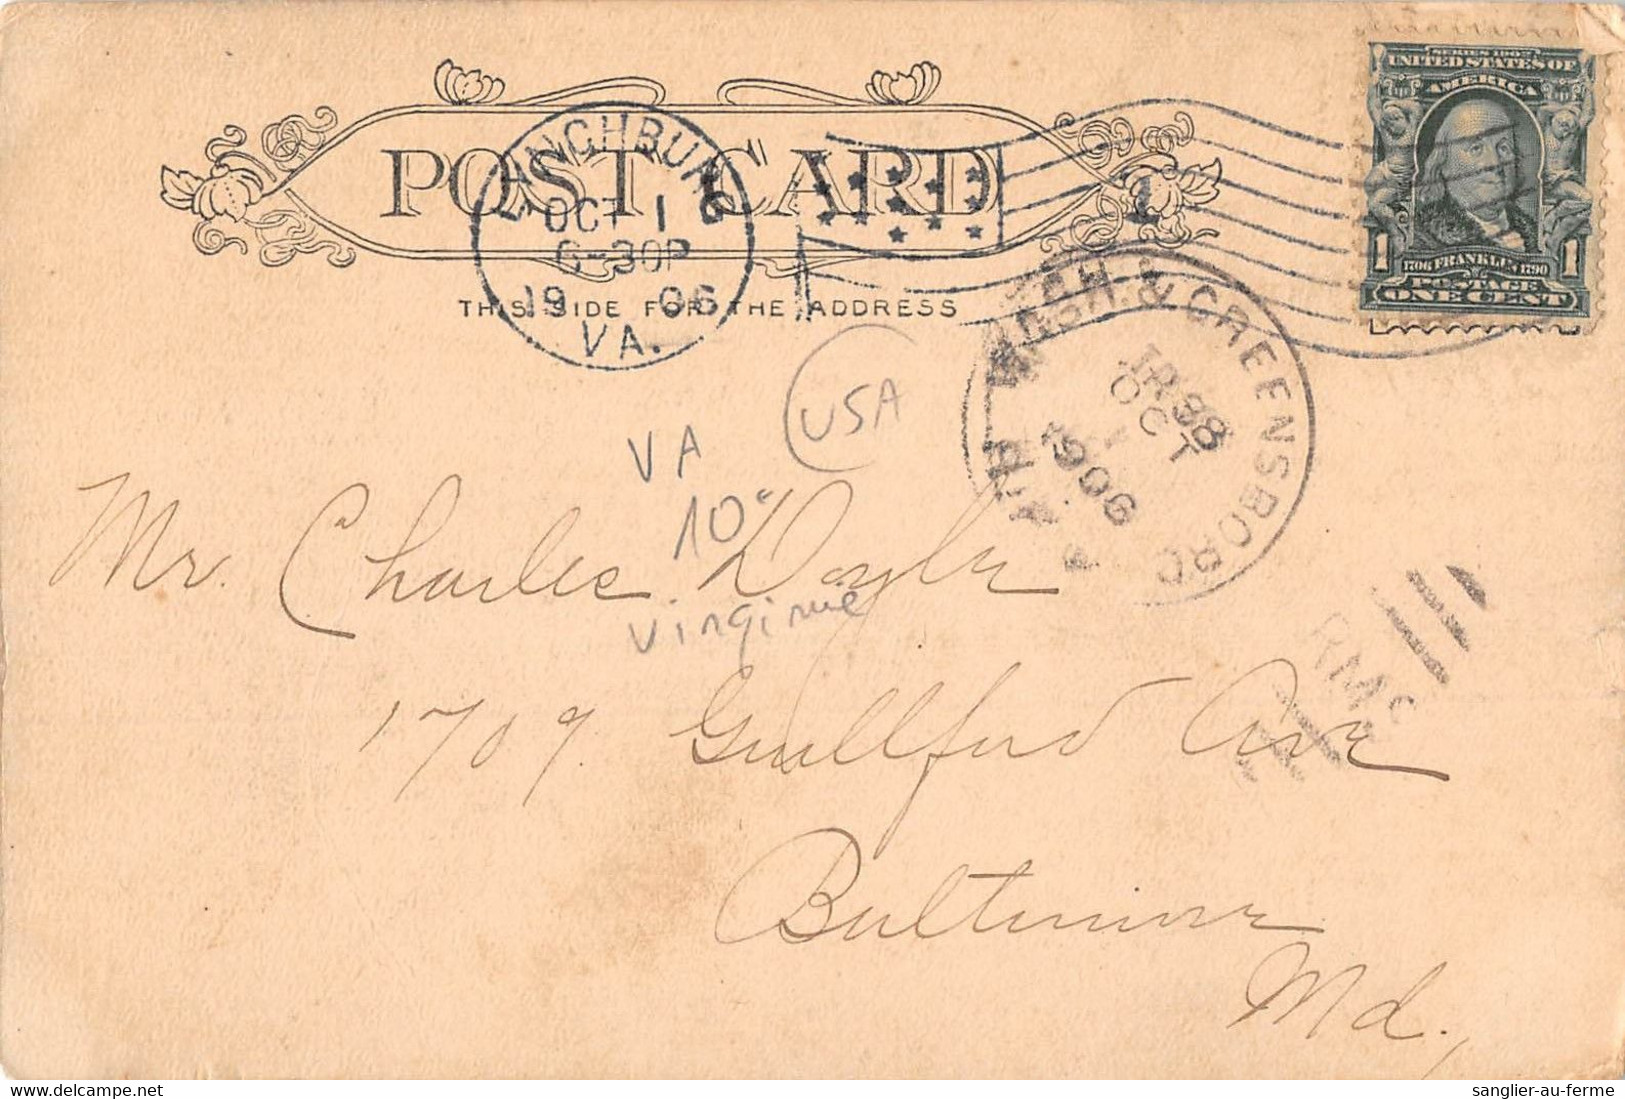 POST CARD
THIS SIDE FOR THE ADDRESS
LYNCHBURG
OCT 1
6-30P
19 06
VA.
1
SERIES 1902
UNITED STATES OF
AMERICA
1 1
1706 FRANKLIN 1790
POSTAGE
ONE CENT
WASH. & GREENSBORO
TR 38
OCT
1
1906
R.P.O.
RMS
USA
VA
10€
Virginie
Mr. Charles Doyle
1709 Guilford Ave
Baltimore
Md.,
sanglier-au-ferme